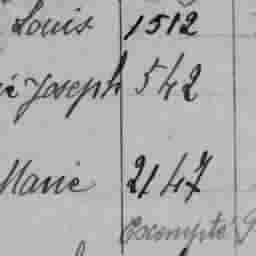 Louis 1512
Joseph 542
Marie 2147
Exempté